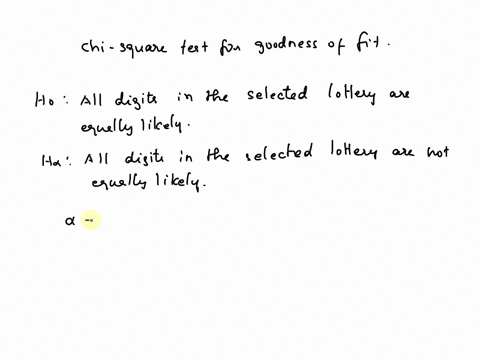 chi-square test for goodness of fit.
Ho : All digits in the selected lottery are
equally likely.
Ha : All digits in the selected lottery are not
equally likely.
α -